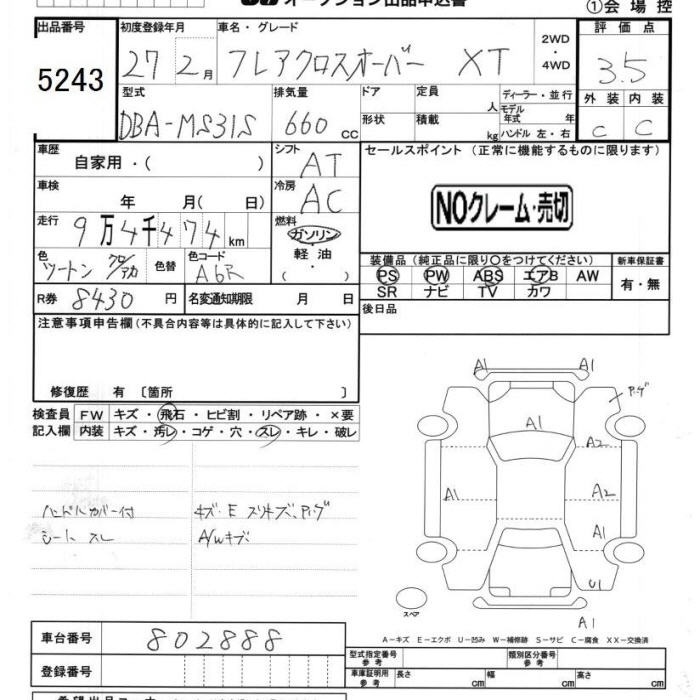 オークション出品申込書
①会場控
出品番号 初度登録年月 車名・グレード 2WD ・ 4WD 評価点
5243 27年2月 フレアクロスオーバー XT 3.5
型式 排気量 ドア 定員 人 ディーラー・並行 外装 内装
DBA-MS31S 660 cc 形状 積載 kg モデル年式 年 ハンドル 左・右 C C
車歴 自家用・( ) シフト AT セールスポイント (正常に機能するものに限ります)
車検 年 月( 日) 冷房 AC
NOクレーム・売切
走行 9万4千474 km 燃料 ガソリン・軽油・( )
色 ツートン クロ/アカ 色替 色コード A6R
装備品 (純正品に限り〇をつけてください) 新車保証書
PS PW ABS エアB AW 有・無
SR ナビ TV カワ
R券 8430 円 名変通知期限 月 日 後日品
注意事項申告欄(不具合内容等は具体的に記入して下さい)
修復歴 有 〔箇所 〕
検査員 FW キズ・飛石・ヒビ割・リペア跡・×要
記入欄 内装 キズ・汚レ・コゲ・穴・スレ・キレ・破レ
ハンドルカバー付 キズ・E スリキズ、
シート スレ A/Wキズ
A1 A1
A1
A2
A1 A2
A1
U1
スペア
A1
A-キズ E-エクボ U-凹み W-補修跡 S-サビ C-腐食 XX-交換済
車台番号 802888
型式指定番号 参考 類別区分番号 参考
登録番号
車庫証明用 参考 長さ cm 幅 cm 高さ cm